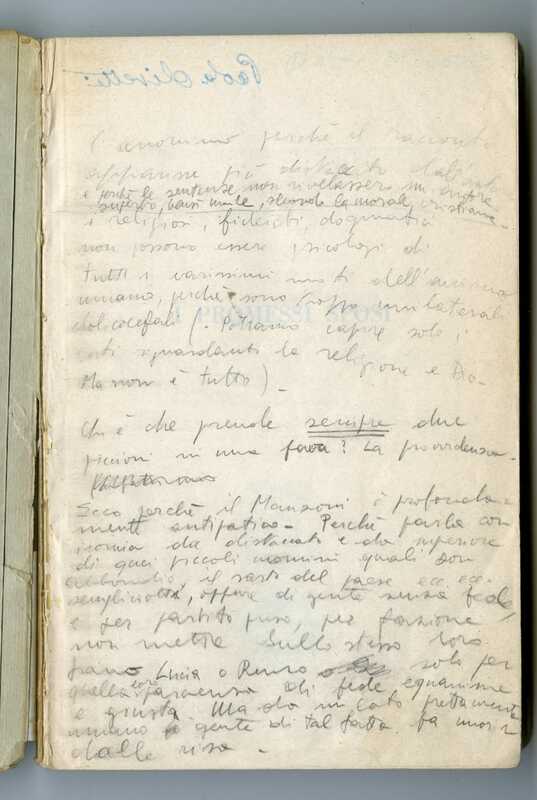 Paola Olivetti
L'anonimo perché il racconto
apparisse più distaccato dall'
e perché le sentenze non rivelassero un autore
superbo, bensì umile, secondo la morale cristiana.
i religiosi, fideisti, dogmatici
non possono essere psicologi di
tutti i varissimi moti dell'animo
umano, perché sono troppo unilaterali
dolicocefali (. Potranno capire solo i
moti riguardanti la religione e Dio.
Ma non è tutto).
I PROMESSI SPOSI
Chi è che prende sempre due
piccioni in una fava? La provvidenza.
Ecco perché il Manzoni è profonda=
mente antipatico. Perché parla con
ironia da distaccati e da superiore
di quei piccoli uomini quali Don
Abbondio, il sarto del paese ecc. ecc.
sempliciotti, oppure di gente senza fede,
e per partito preso, per fazione
non mette sullo stesso loro
piano Lucia o Renzo solo per
quella loro parvenza di fede equanime
e giusta. Ma da un lato prettamente
umano è gente di tal fatta fa morir
dalle risa.